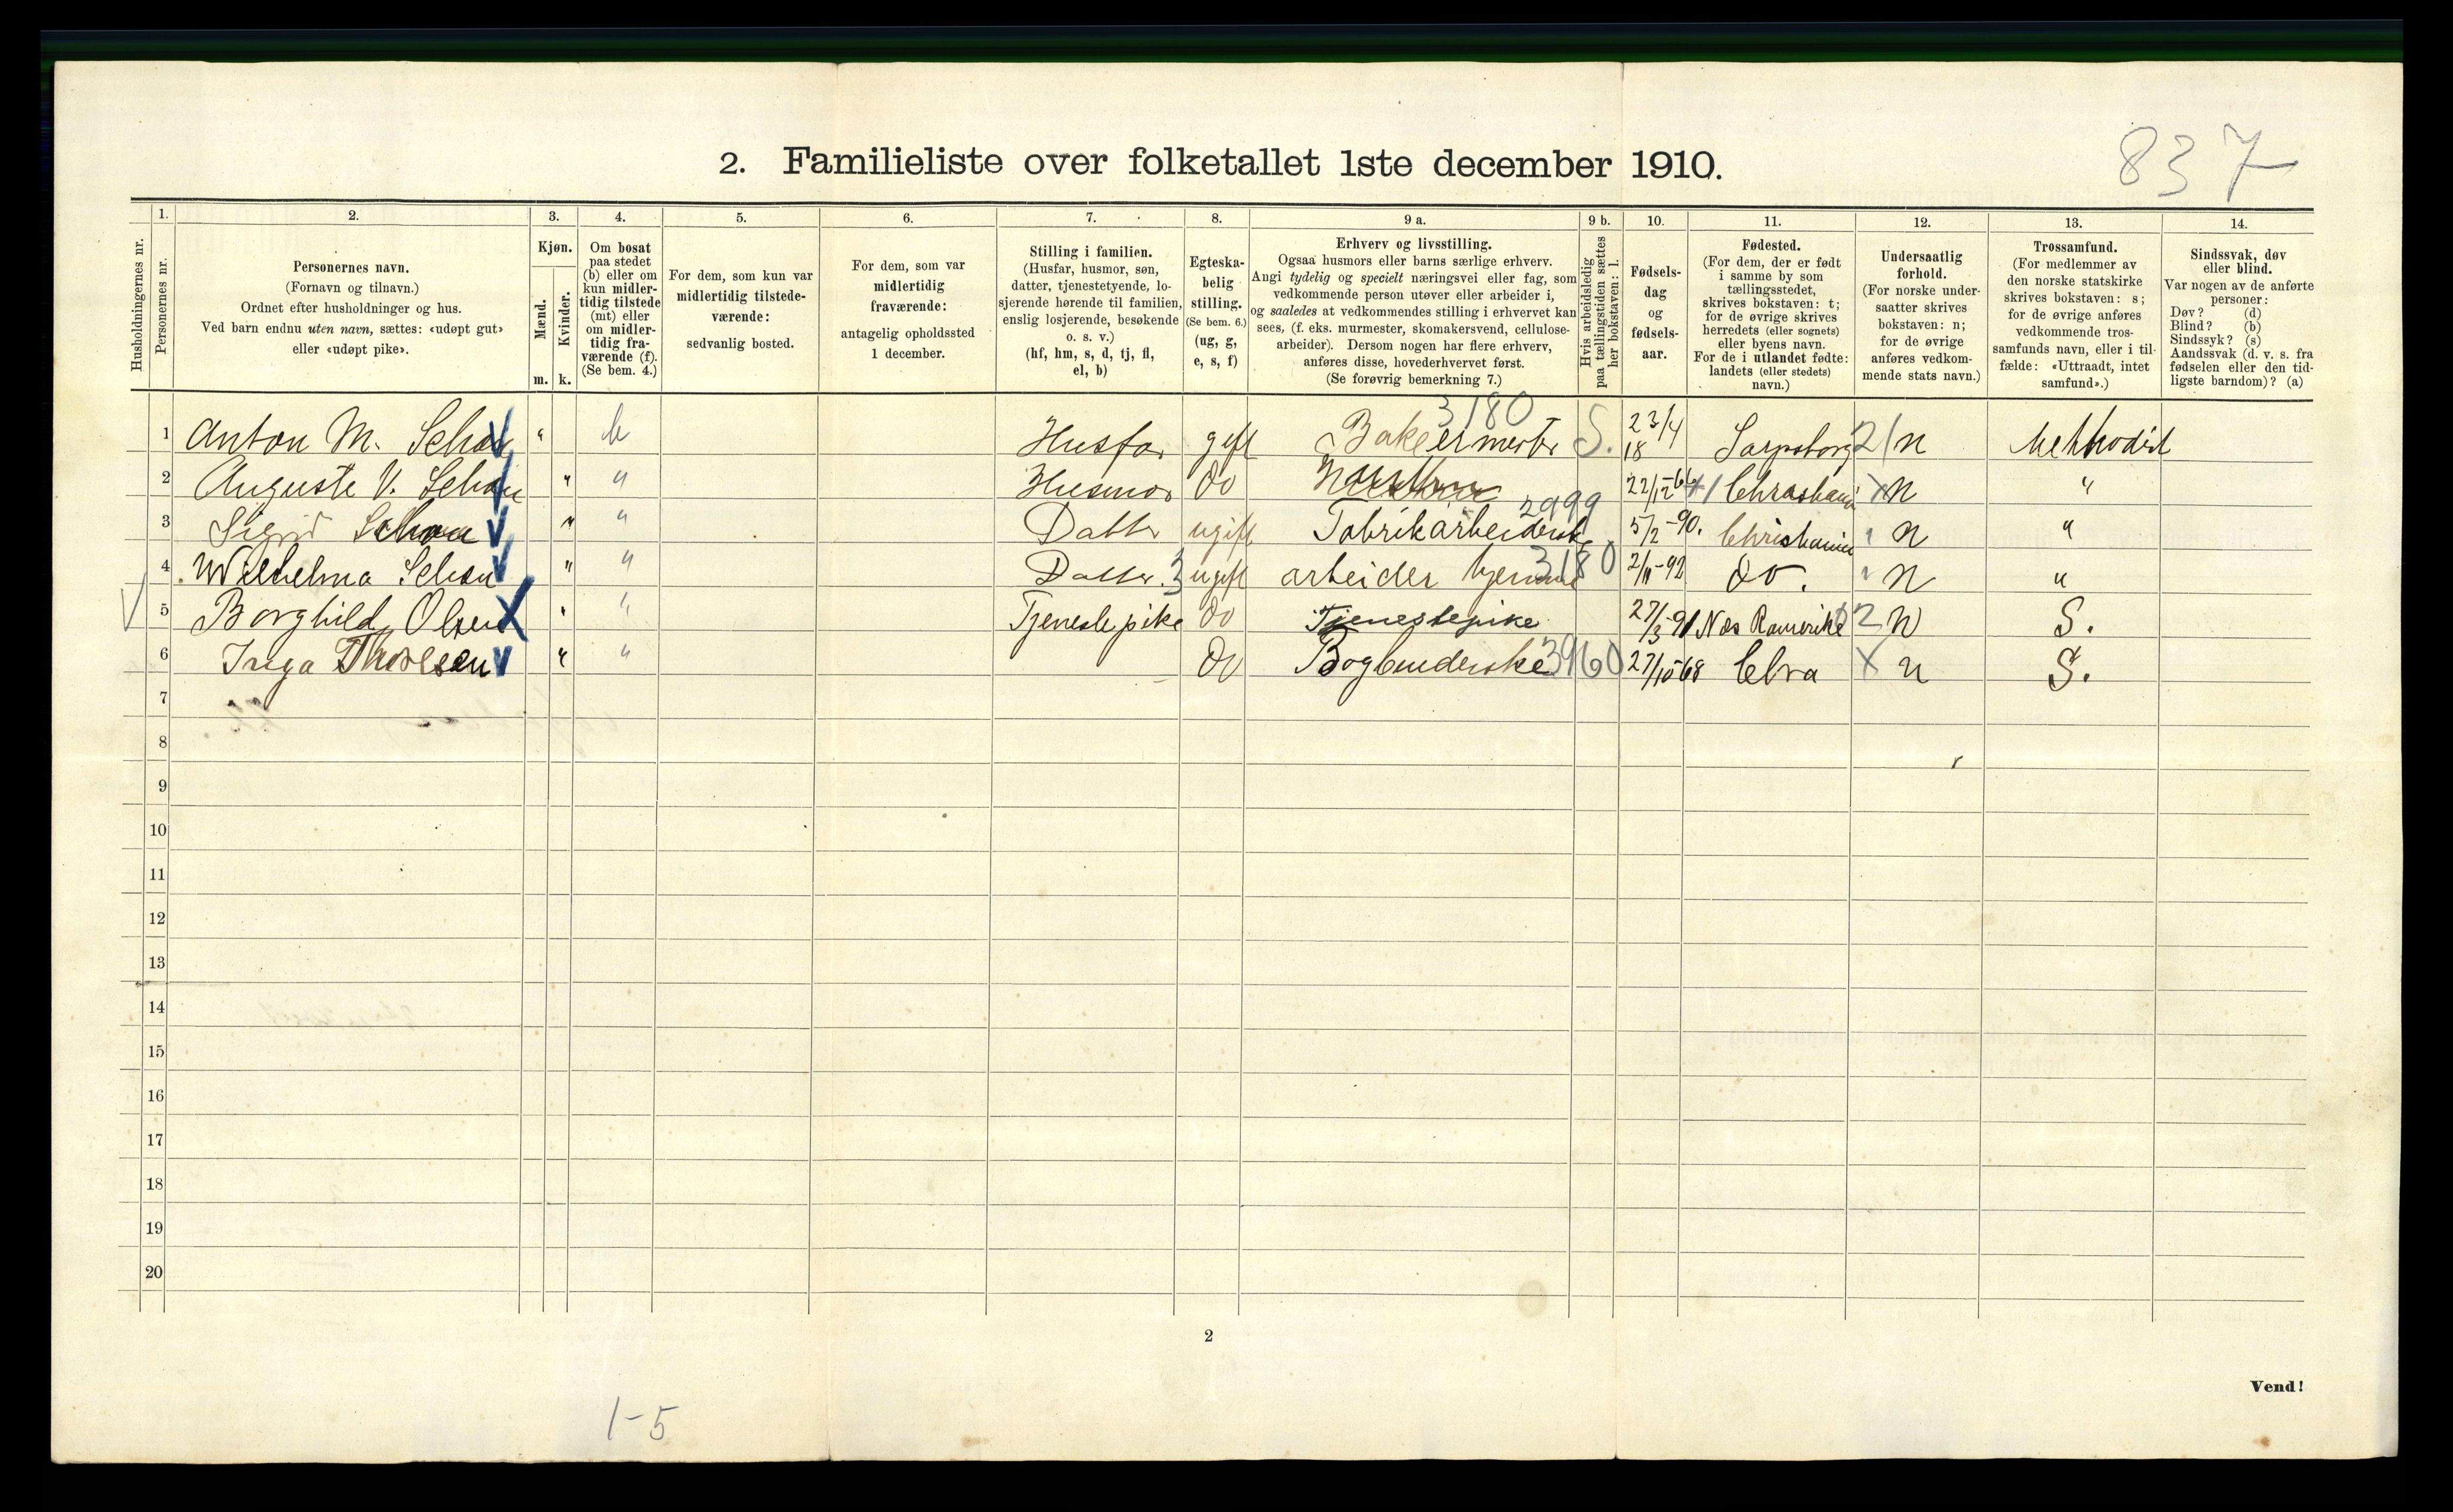 837
2. Familieliste over folketallet 1ste december 1910.
Husholdningernes nr.
1.
Personernes nr.
2.
Personernes navn.
(Fornavn og tilnavn.)
Ordnet efter husholdninger og hus.
Ved barn endnu uten navn, sættes: «udøpt gut»
eller «udøpt pike».
3.
Kjøn.
Mænd.
m.
Kvinder.
k.
4.
Om bosat
paa stedet
(b) eller om
kun midler-
tidig tilstede
(mt) eller
om midler-
tidig fra-
værende (f).
(Se bem. 4.)
5.
For dem, som kun var
midlertidig tilstede-
værende:
sedvanlig bosted.
6.
For dem, som var
midlertidig
fraværende:
antagelig opholdssted
1 december.
7.
Stilling i familien.
(Husfar, husmor, søn,
datter, tjenestetyende, lo-
sjerende hørende til familien,
enslig losjerende, besøkende
o. s. v.)
(hf, hm, s, d, tj, fl,
el, b)
8.
Egteska-
belig
stilling.
(Se bem. 6.)
(ug, g,
e, s, f)
9 a.
Erhverv og livsstilling.
Ogsaa husmors eller barns særlige erhverv.
Angi tydelig og specielt næringsvei eller fag, som
vedkommende person utøver eller arbeider i,
og saaledes at vedkommendes stilling i erhvervet kan
sees, (f. eks. murmester, skomakersvend, cellulose-
arbeider). Dersom nogen har flere erhverv,
anføres disse, hovederhvervet først.
(Se forøvrig bemerkning 7.)
9 b.
Hvis arbeidsledig
paa tællingstiden sættes
her bokstaven: l.
10.
Fødsels-
dag
og
fødsels-
aar.
11.
Fødested.
(For dem, der er født
i samme by som
tællingsstedet,
skrives bokstaven: t;
for de øvrige skrives
herredets (eller sognets)
eller byens navn.
For de i utlandet fødte:
landets (eller stedets)
navn.)
12.
Undersaatlig
forhold.
(For norske under-
saatter skrives
bokstaven: n;
for de øvrige
anføres vedkom-
mende stats navn.)
13.
Trossamfund.
(For medlemmer av
den norske statskirke
skrives bokstaven: s;
for de øvrige anføres
vedkommende tros-
samfunds navn, eller i til-
fælde: «Uttraadt, intet
samfund».)
14.
Sindssvak, døv
eller blind.
Var nogen av de anførte
personer:
Døv? (d)
Blind? (b)
Sindssyk? (s)
Aandssvak (d. v. s. fra
fødselen eller den tid-
ligste barndom)? (a)
3180
1 Anton M. Schou " b Husfar gift Bakermester S. 23/4 18 Sarpsborg 21 n Methodist
2 Auguste V. Schou " " Husmor do 22/12-66 Christiania X n "
2999
3 Sigrid Schou " " Datter ugift Fabrikarbeiderske 5/2-90. Christiania " n "
4 Wilhelma Schou " " Datter. 3 ugift arbeider hjemme 3180 2/11-92 do. " n "
5 Borghild Olsen " " Tjenestepike do Tjenestepike 27/3-91 Nes Romerike 02 n S.
6 Inga Thoresen " " do Bogbinderske 3960 27/10-68 Chra X n S.
7
8
9
10
11
12
13
14
15
16
17
18
19
20
2
Vend!
1-5